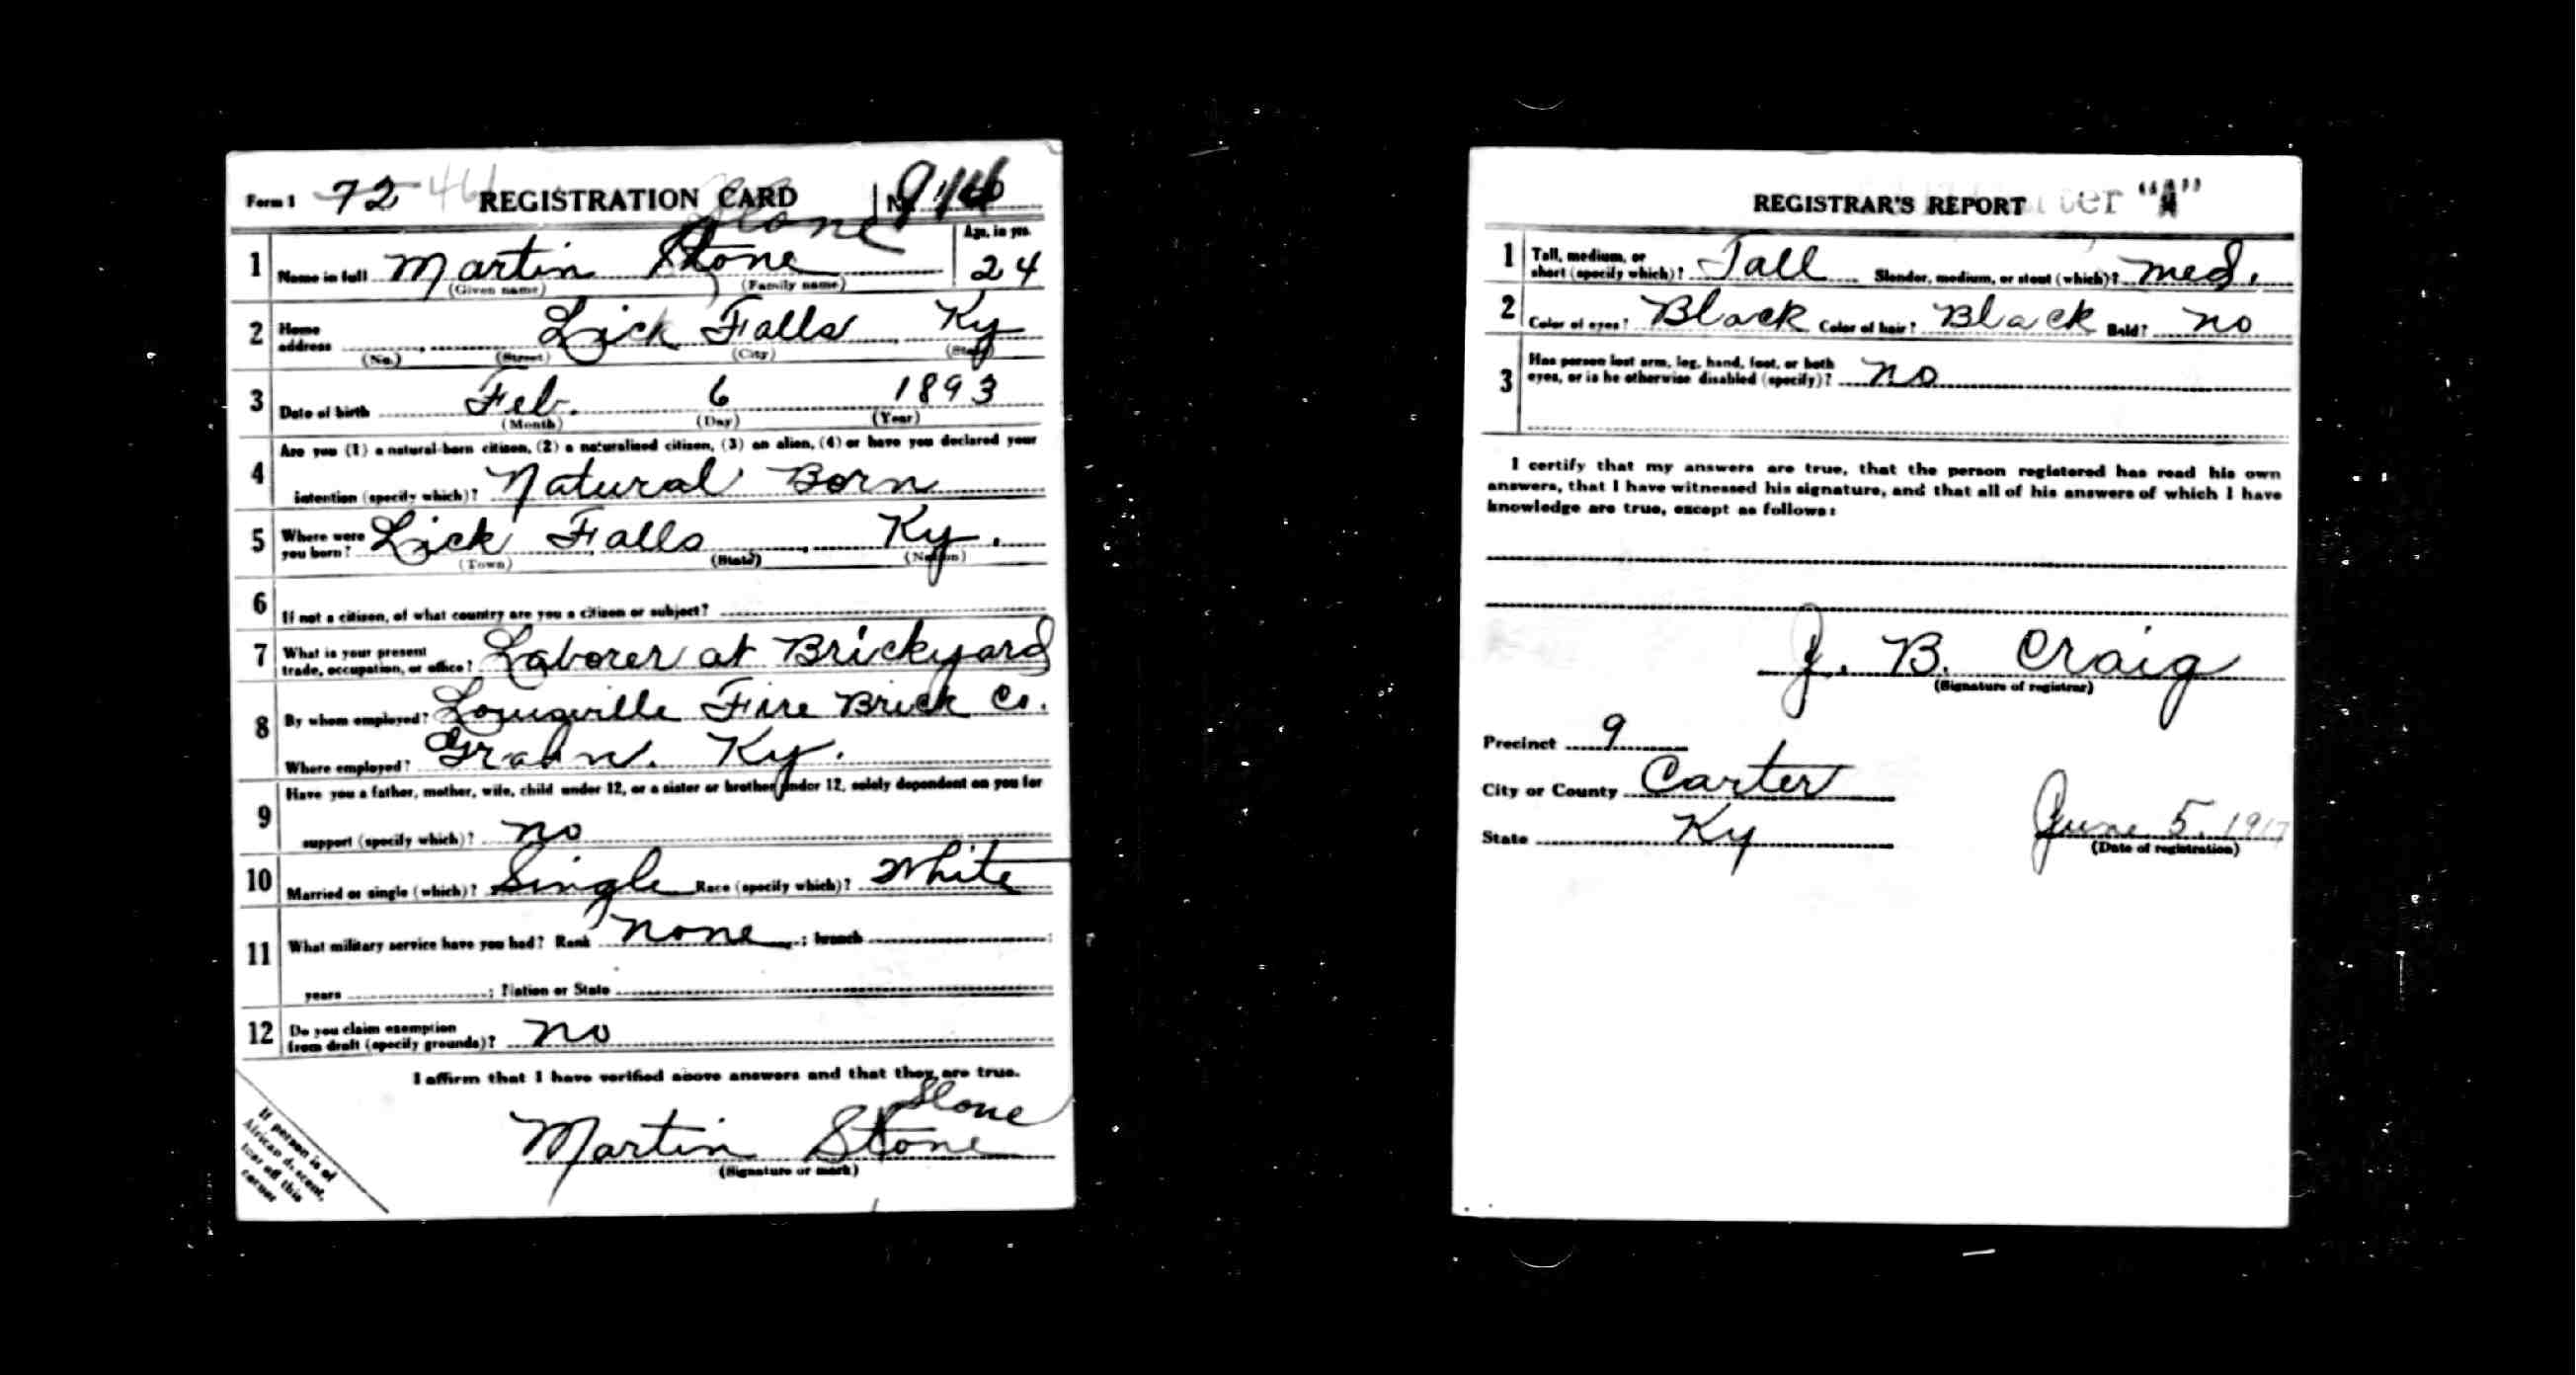 Form 1 72 REGISTRATION CARD No.
Slone
1 Name in full Martin Stone Age, in yrs. 24
(Given name) (Family name)
2 Home address Lick Falls, Ky
(No.) (Street) (City) (State)
3 Date of birth Feb. 6 1893
(Month) (Day) (Year)
Are you (1) a natural-born citizen, (2) a naturalized citizen, (3) an alien, (4) or have you declared your
4 intention (specify which)? Natural Born
5 Where were you born? Lick Falls, Ky.
(Town) (State) (Nation)
6 If not a citizen, of what country are you a citizen or subject?
7 What is your present trade, occupation, or office? Laborer at Brickyard
8 By whom employed? Louisville Fire Brick Co.
Where employed? Grahn. Ky.
Have you a father, mother, wife, child under 12, or a sister or brother under 12, solely dependent on you for
9 support (specify which)? no
10 Married or single (which)? Single Race (specify which)? White
11 What military service have you had? Rank none ; branch ;
years ; Nation or State
12 Do you claim exemption from draft (specify grounds)? no
I affirm that I have verified above answers and that they are true.
Slone
Martin Stone
(Signature or mark)
If person is of
African descent,
tear off this
corner
REGISTRAR'S REPORT "A"
1 Tall, medium, or short (specify which)? Tall Slender, medium, or stout (which)? med.
2 Color of eyes? Black Color of hair? Black Bald? no
3 Has person lost arm, leg, hand, foot, or both eyes, or is he otherwise disabled (specify)? no
I certify that my answers are true, that the person registered has read his own
answers, that I have witnessed his signature, and that all of his answers of which I have
knowledge are true, except as follows:
J. B. Craig
(Signature of registrar)
Precinct 9
City or County Carter
State Ky
June 5. 1917
(Date of registration)